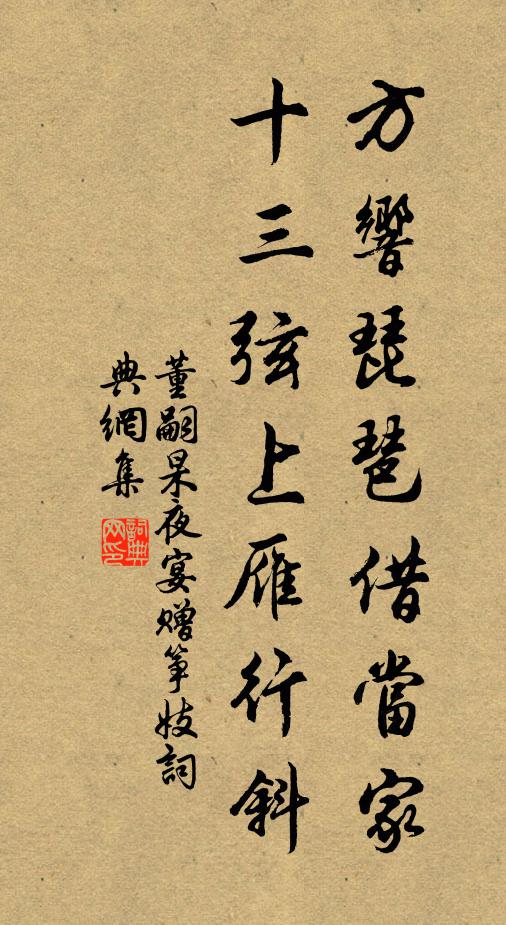 方響琵琶借當家
十三弦上雁行斜
董嗣杲夜宴赠筝妓詞
典網集
詞典網印